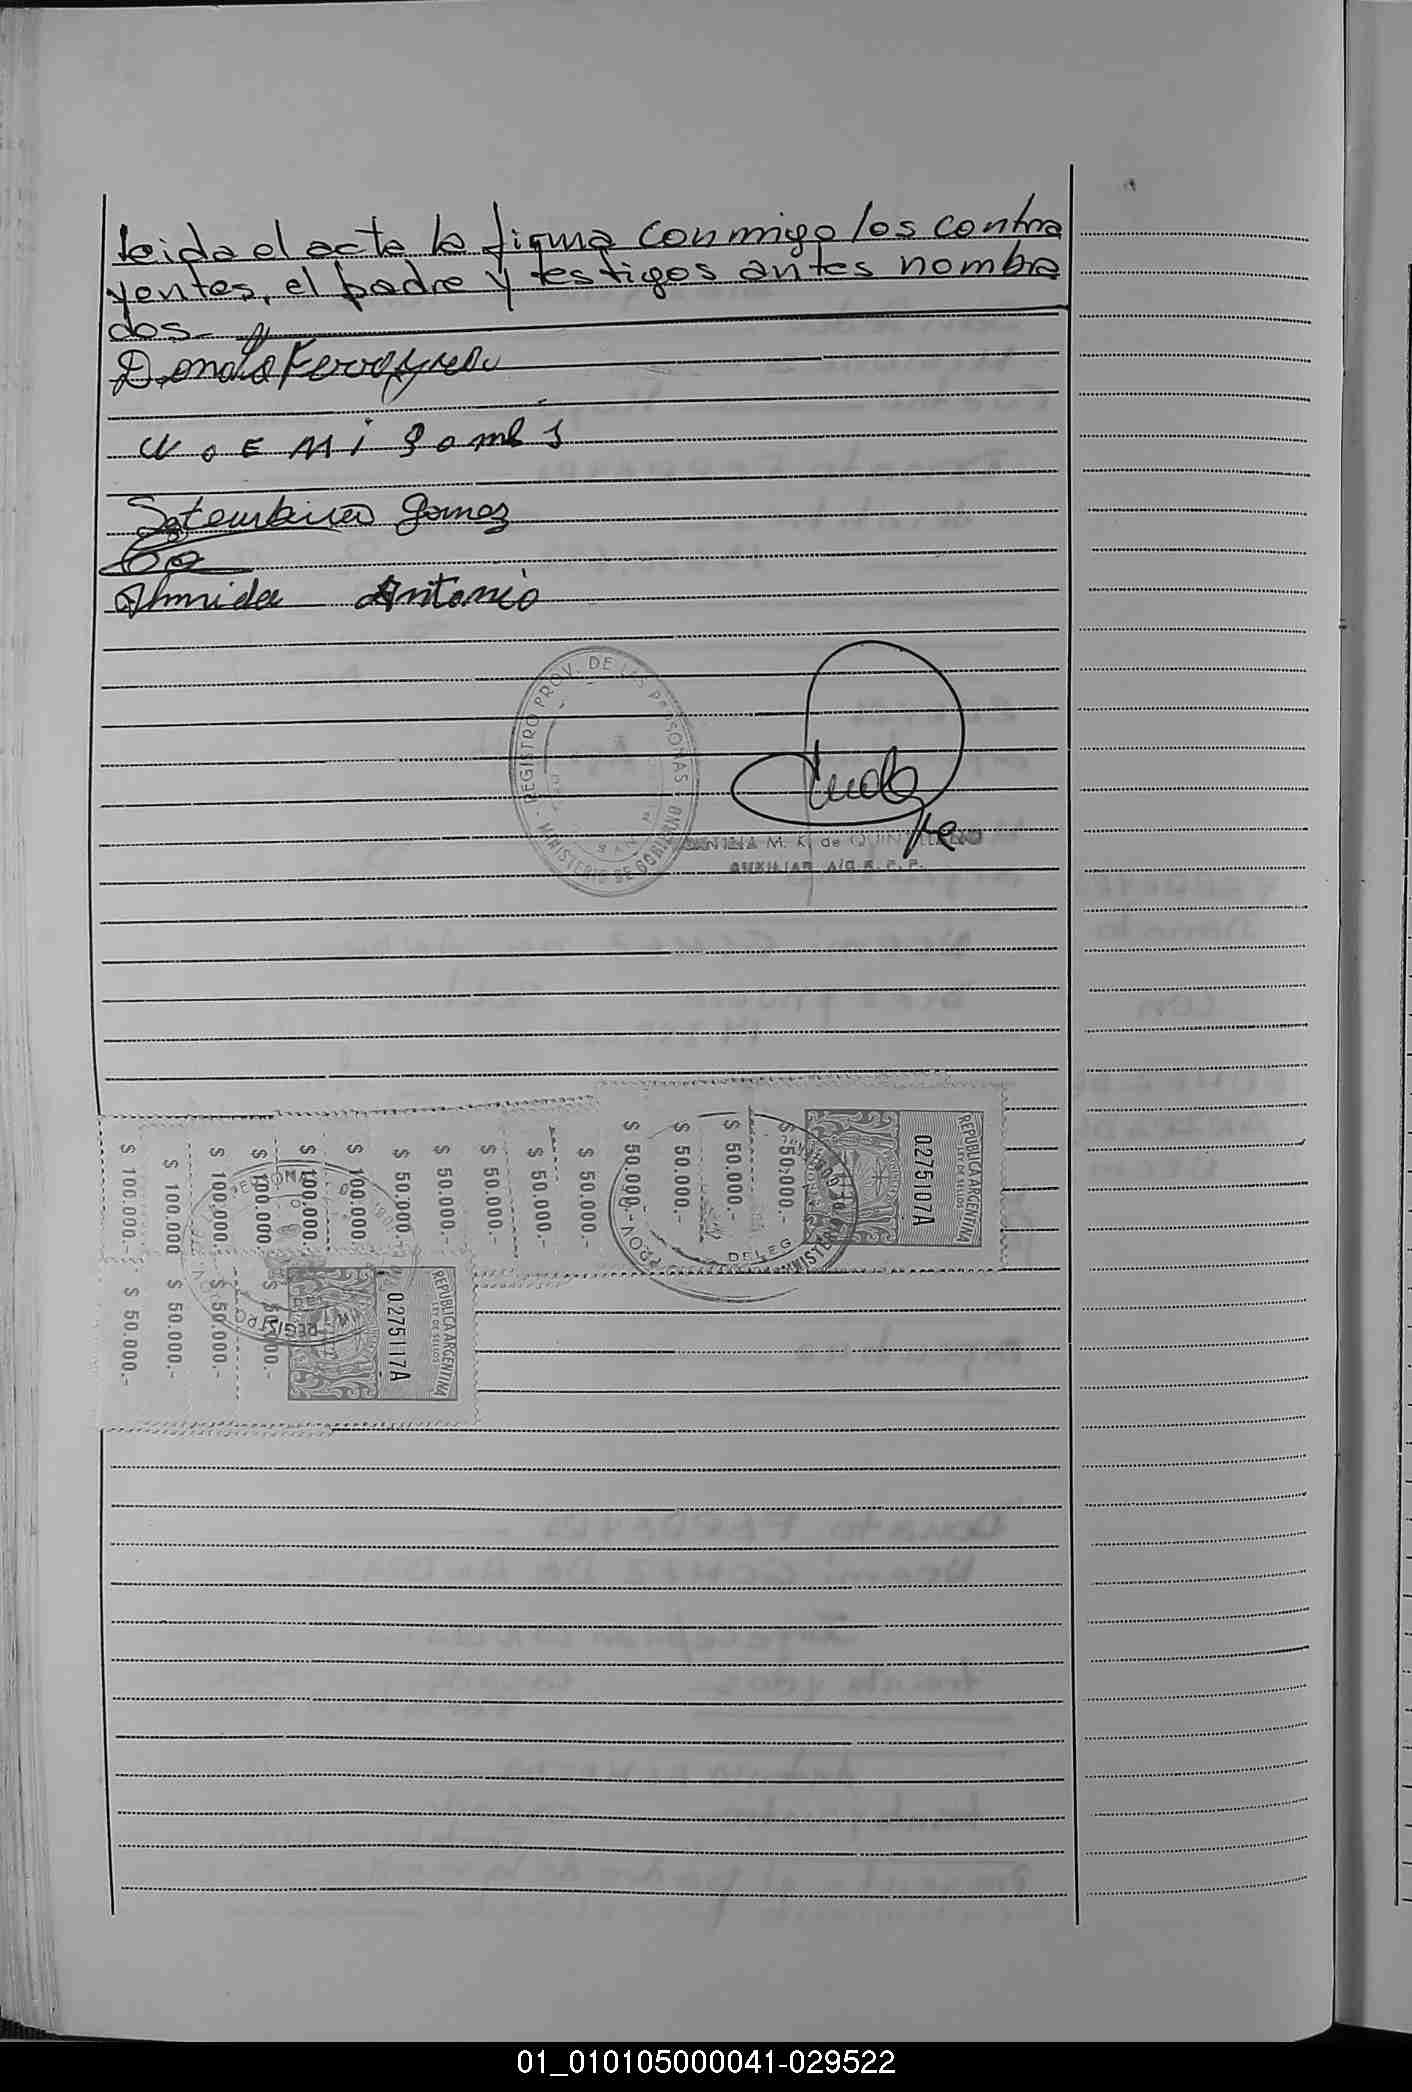 leida el acta la firma conmigo los contra
yentes, el padre y testigos antes nombra
dos.-
Donato
NOEMI Gomes
Gomez
Almida Antonio
REGISTRO PROV. DE LAS PERSONAS
MINISTERIO DE GOBIERNO
M. K. de QUINTILIANO
AUXILIAR A/C R. P. P.
REPUBLICA ARGENTINA
LEY DE SELLOS
0275107A
$ 50.000.-
$ 50.000.-
$ 50.000.-
$ 50.000.-
$ 50.000.-
$ 50.000.-
$ 50.000.-
$ 50.000.-
$ 50.000.-
$ 100.000.-
$ 100.000.-
$ 100.000.-
$ 100.000.-
$ 100.000
$ 100.000.-
PROV
DELEG
MINISTER
REPUBLICA ARGENTINA
LEY DE SELLOS
0275117A
$ 50.000.-
$ 50.000.-
$ 50.000.-
$ 50.000.-
REGISTRO
01_010105000041-029522